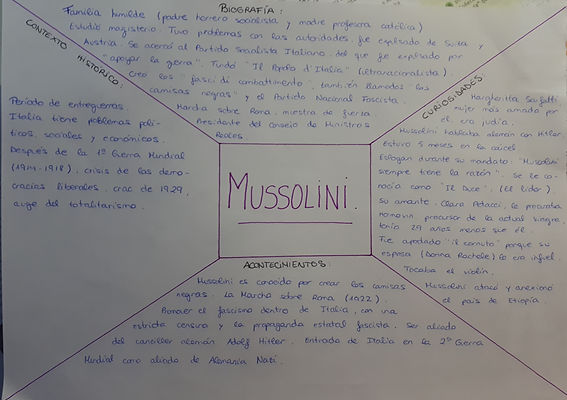 BIOGRAFÍA:
Familia humilde (padre herrero socialista y madre profesora católica)
Estudió magisterio. Tuvo problemas con las autoridades, fue expulsado de Suiza y
Austria. Se acercó al Partido Socialista Italiano, del que fue expulsado por
"apoyar la guerra". Fundó "Il Popolo d'Italia" (ultranacionalista).
Creó los "fasci di combattimento", también llamados los
"camisas negras" y el Partido Nacional Fascista.
Marcha sobre Roma: muestra de fuerza.
Presidente del consejo de Ministros
Reales
CONTEXTO
HISTÓRICO:
Período de entreguerras.
Italia tiene problemas polí-
ticos, sociales y económicos.
Después de la 1ª Guerra Mundial
(1914-1918), crisis de las demo-
cracias liberales, crac de 1929,
auge del totalitarismo.
MUSSOLINI.
CURIOSIDADES
Margherita Sarfatti
mujer más amada por
él, era judía.
Mussolini hablaba alemán con Hitler.
Estuvo 5 meses en la cárcel
Eslogan durante su mandato: "Mussolini
siempre tiene la razón". Se le co-
nocía como "Il Duce", (el líder).
su amante, Clara Petacci, le procuraba
Hormovin precursor de la actual viagra,
tenía 29 años menos que él.
Fue apodado "il cornuto" porque su
esposa (Donna Rachele) le era infiel.
Tocaba el violín.
Mussolini atacó y anexionó
el país de Etiopía.
ACONTECIMIENTOS:
Mussolini es conocido por crear los camisas
negras. La Marcha sobre Roma (1922).
Promover el fascismo dentro de Italia, con una
estricta censura y la propaganda estatal fascista. Ser aliado
del canciller alemán Adolf Hitler. Entrada de Italia en la 2ª Guerra
Mundial como aliado de Alemania Nazi.